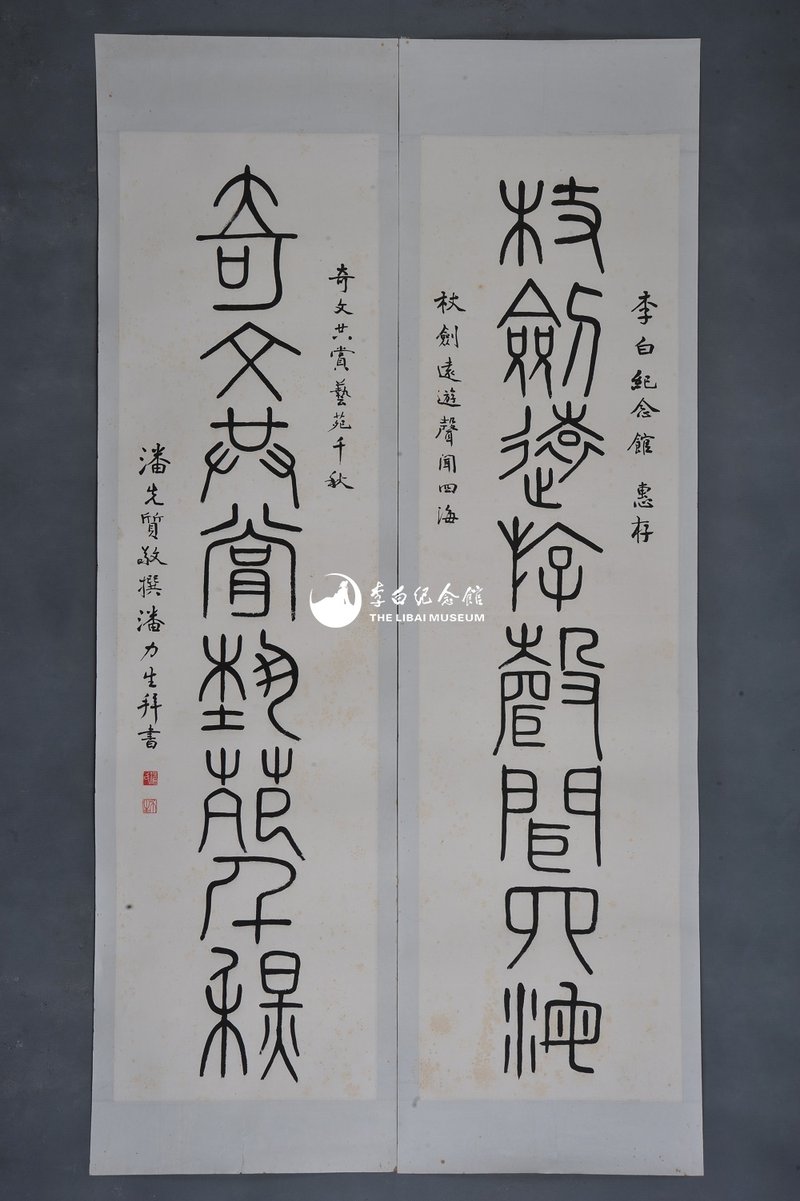 李白紀念館 惠存
杖劍遠遊聲聞四海
杖劍遠游聲聞四海
奇文共賞藝苑千秋
奇文共賞藝苑千秋
潘先質敬撰潘力生拜書
李白纪念館
THE LIBAI MUSEUM